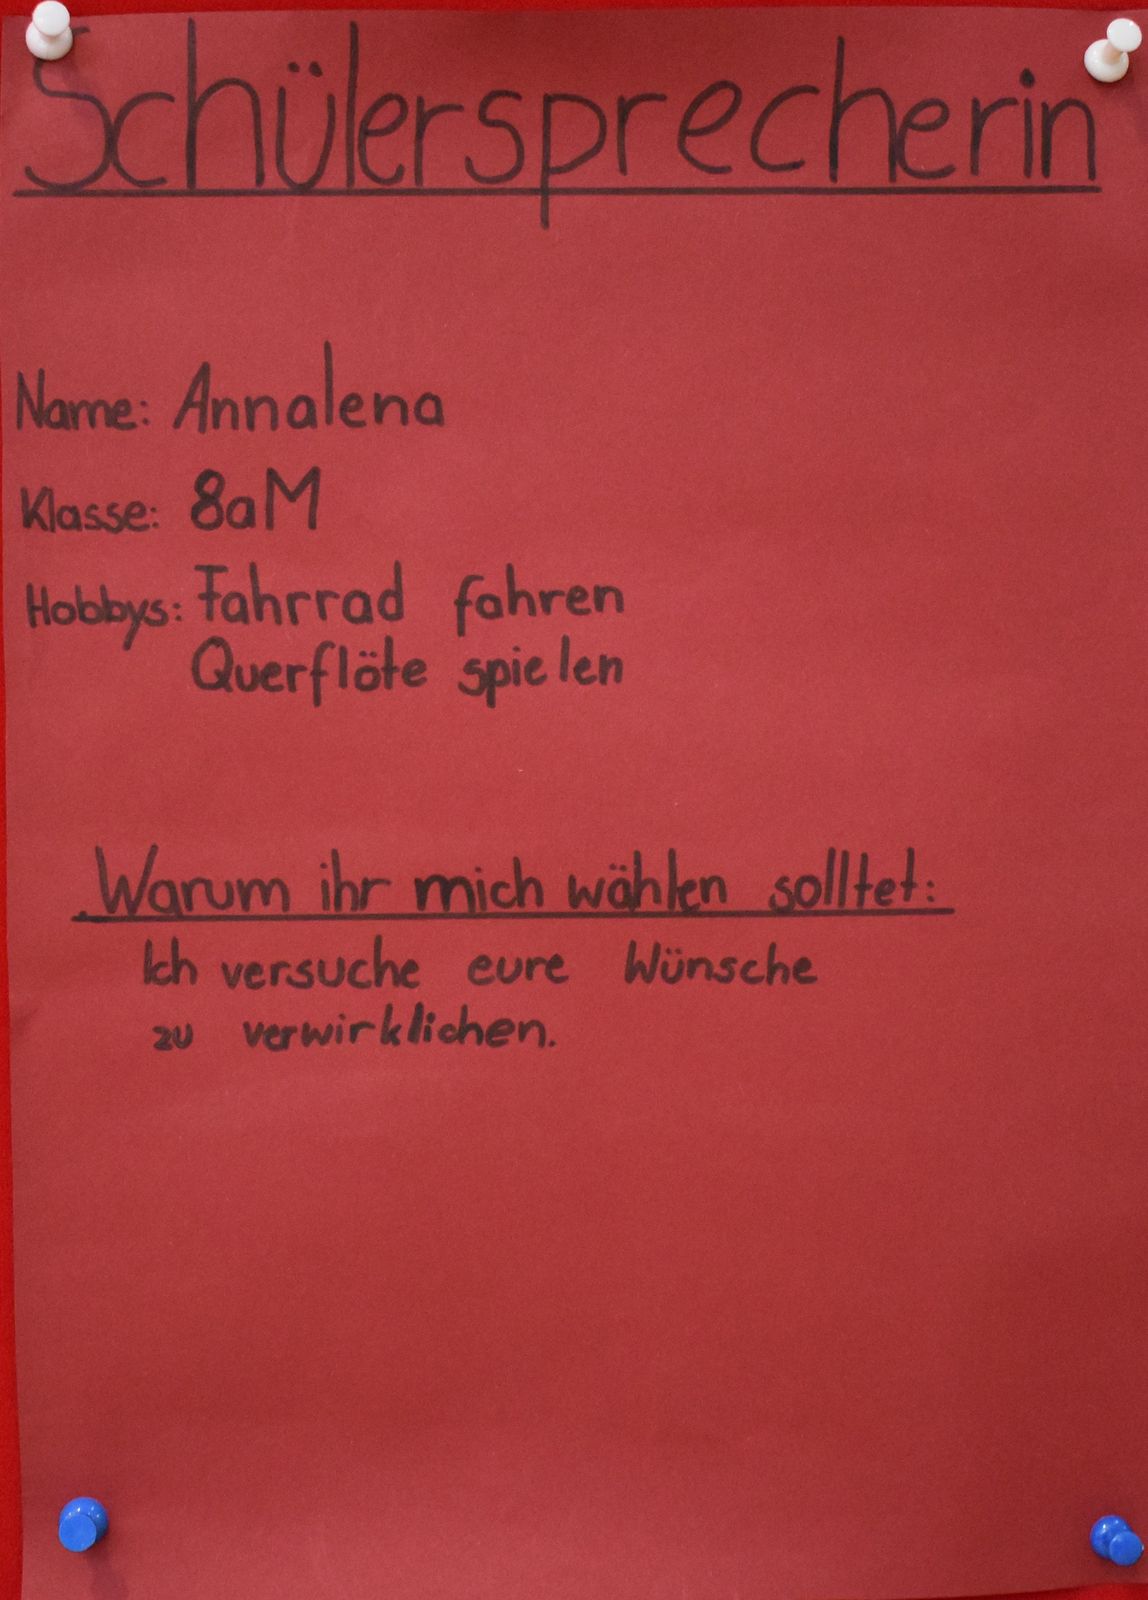 Schülersprecherin
Name: Annalena
Klasse: 8aM
Hobbys: Fahrrad fahren
Querflöte spielen
Warum ihr mich wählen solltet:
Ich versuche eure Wünsche
zu verwirklichen.